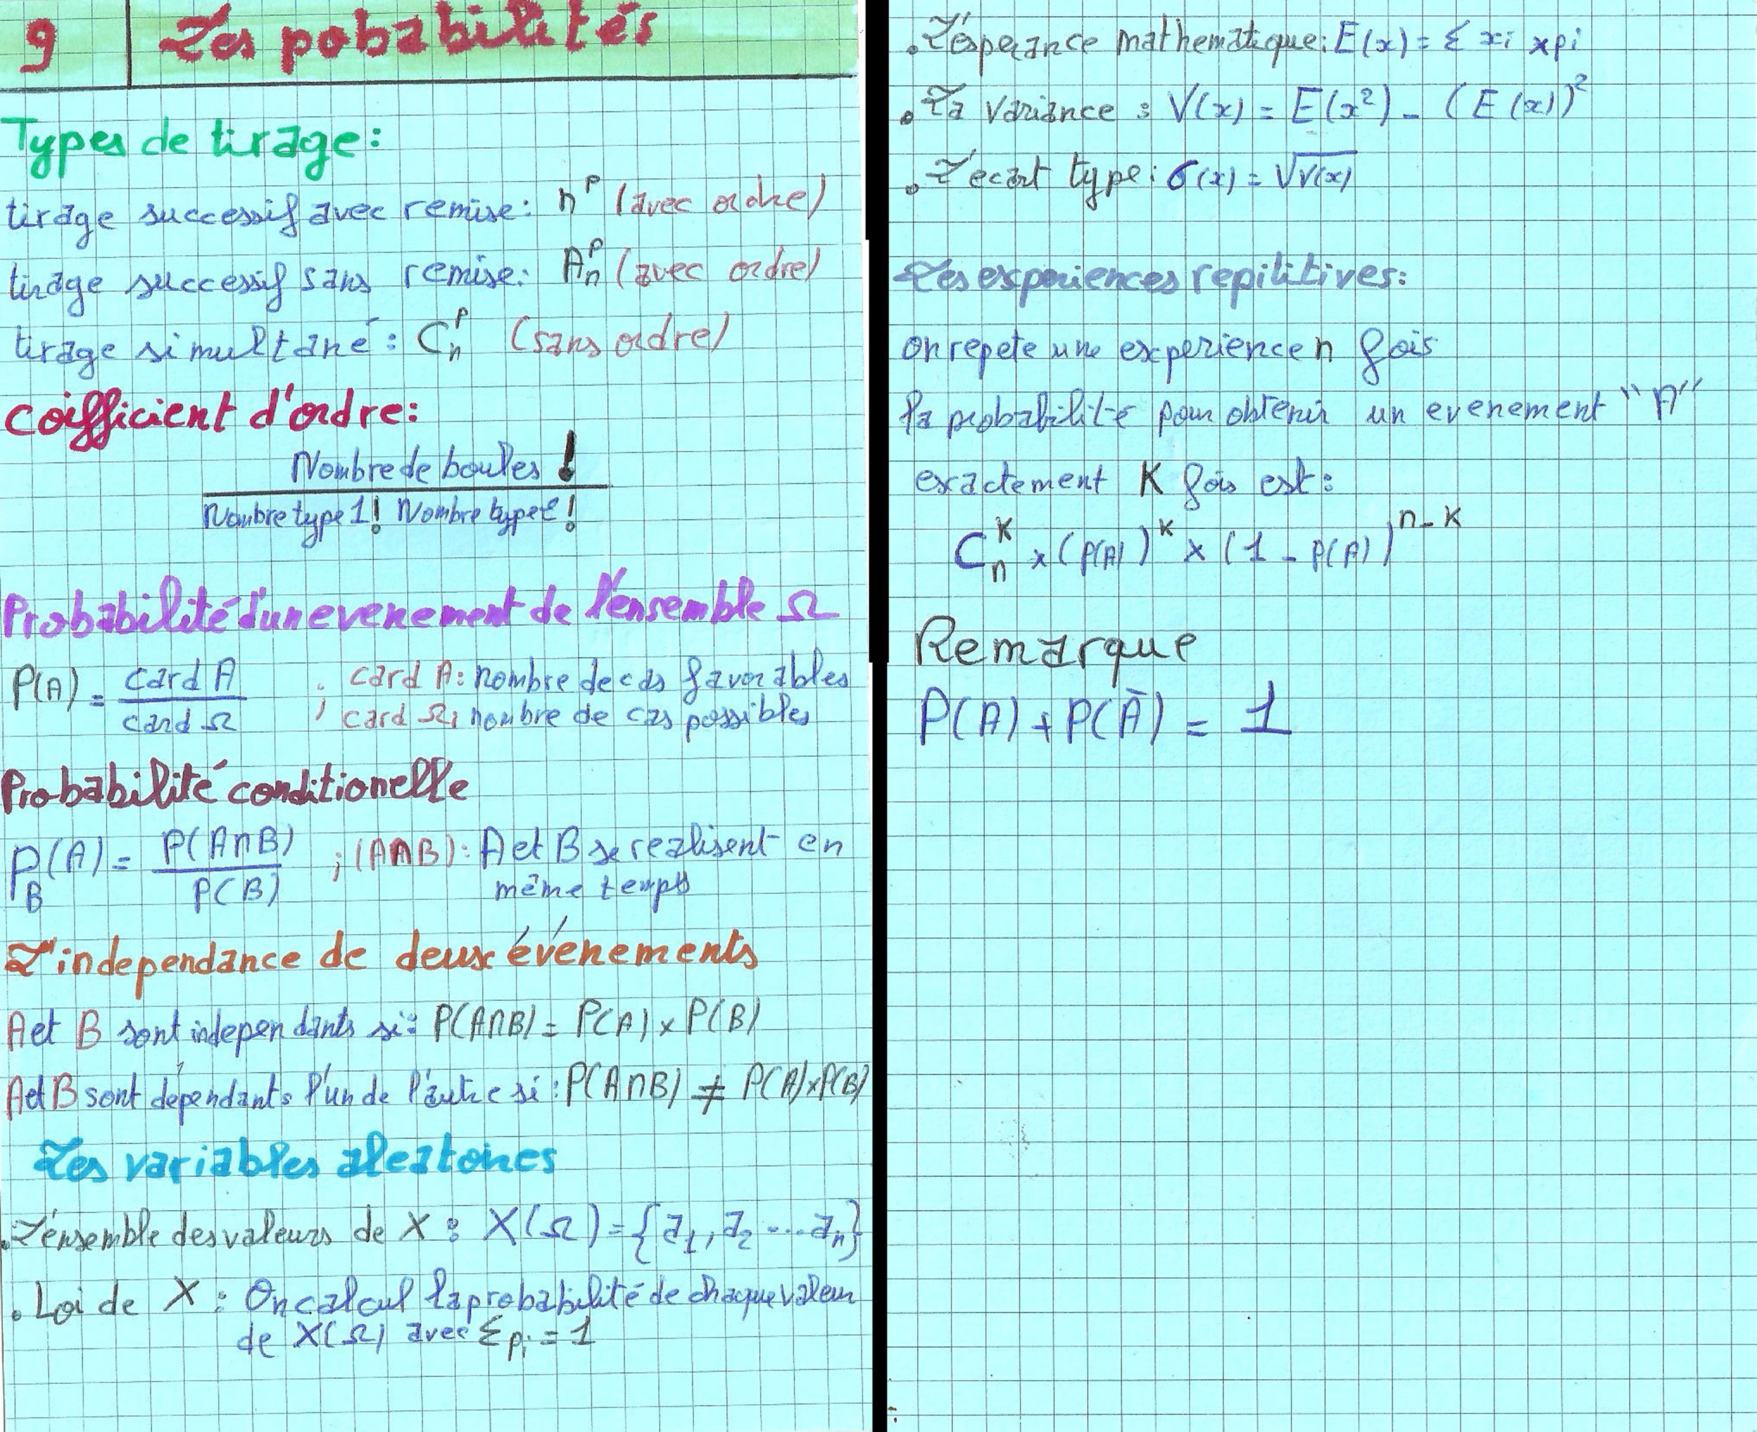 9 Les pobabilités
Types de tirage:
tirage successif avec remise: n^p (avec ordre)
tirage successif sans remise: A_n^p (avec ordre)
tirage simultané: C_n^p (sans ordre)
coifficient d'ordre:
Nombre de boules !
Nombre type 1! Nombre type 2!
Probabilité d'un evenement de l'ensemble Ω
P(A) = card A / card Ω ; card A: nombre de cas favorables
; card Ω: nombre de cas possibles
Probabilité conditionelle
P_B(A) = P(A∩B) / P(B) ; (A∩B): A et B se realisent en
même temps
L'independance de deux événements
A et B sont independants si: P(A∩B) = P(A) × P(B)
A et B sont dépendants l'un de l'autre si: P(A∩B) ≠ P(A)×P(B)
Les variables aleatoires
. L'énsemble des valeurs de X : X(Ω) = {a_1, a_2 ... a_n}
. Loi de X : On calcul la probabilité de chaque valeur
de X(Ω) avec Σp_i = 1
. L'ésperance mathematique: E(x) = Σ x_i × p_i
. La variance : V(x) = E(x²) - (E(x))²
. L'ecart type: σ(x) = √V(x)
Les experiences repititives:
on repete une experience n fois
la probabilité pour obtenir un evenement "A"
exactement K fois est:
C_n^K × (P(A))^K × (1 - P(A))^{n-K}
Remarque
P(A) + P(Ā) = 1